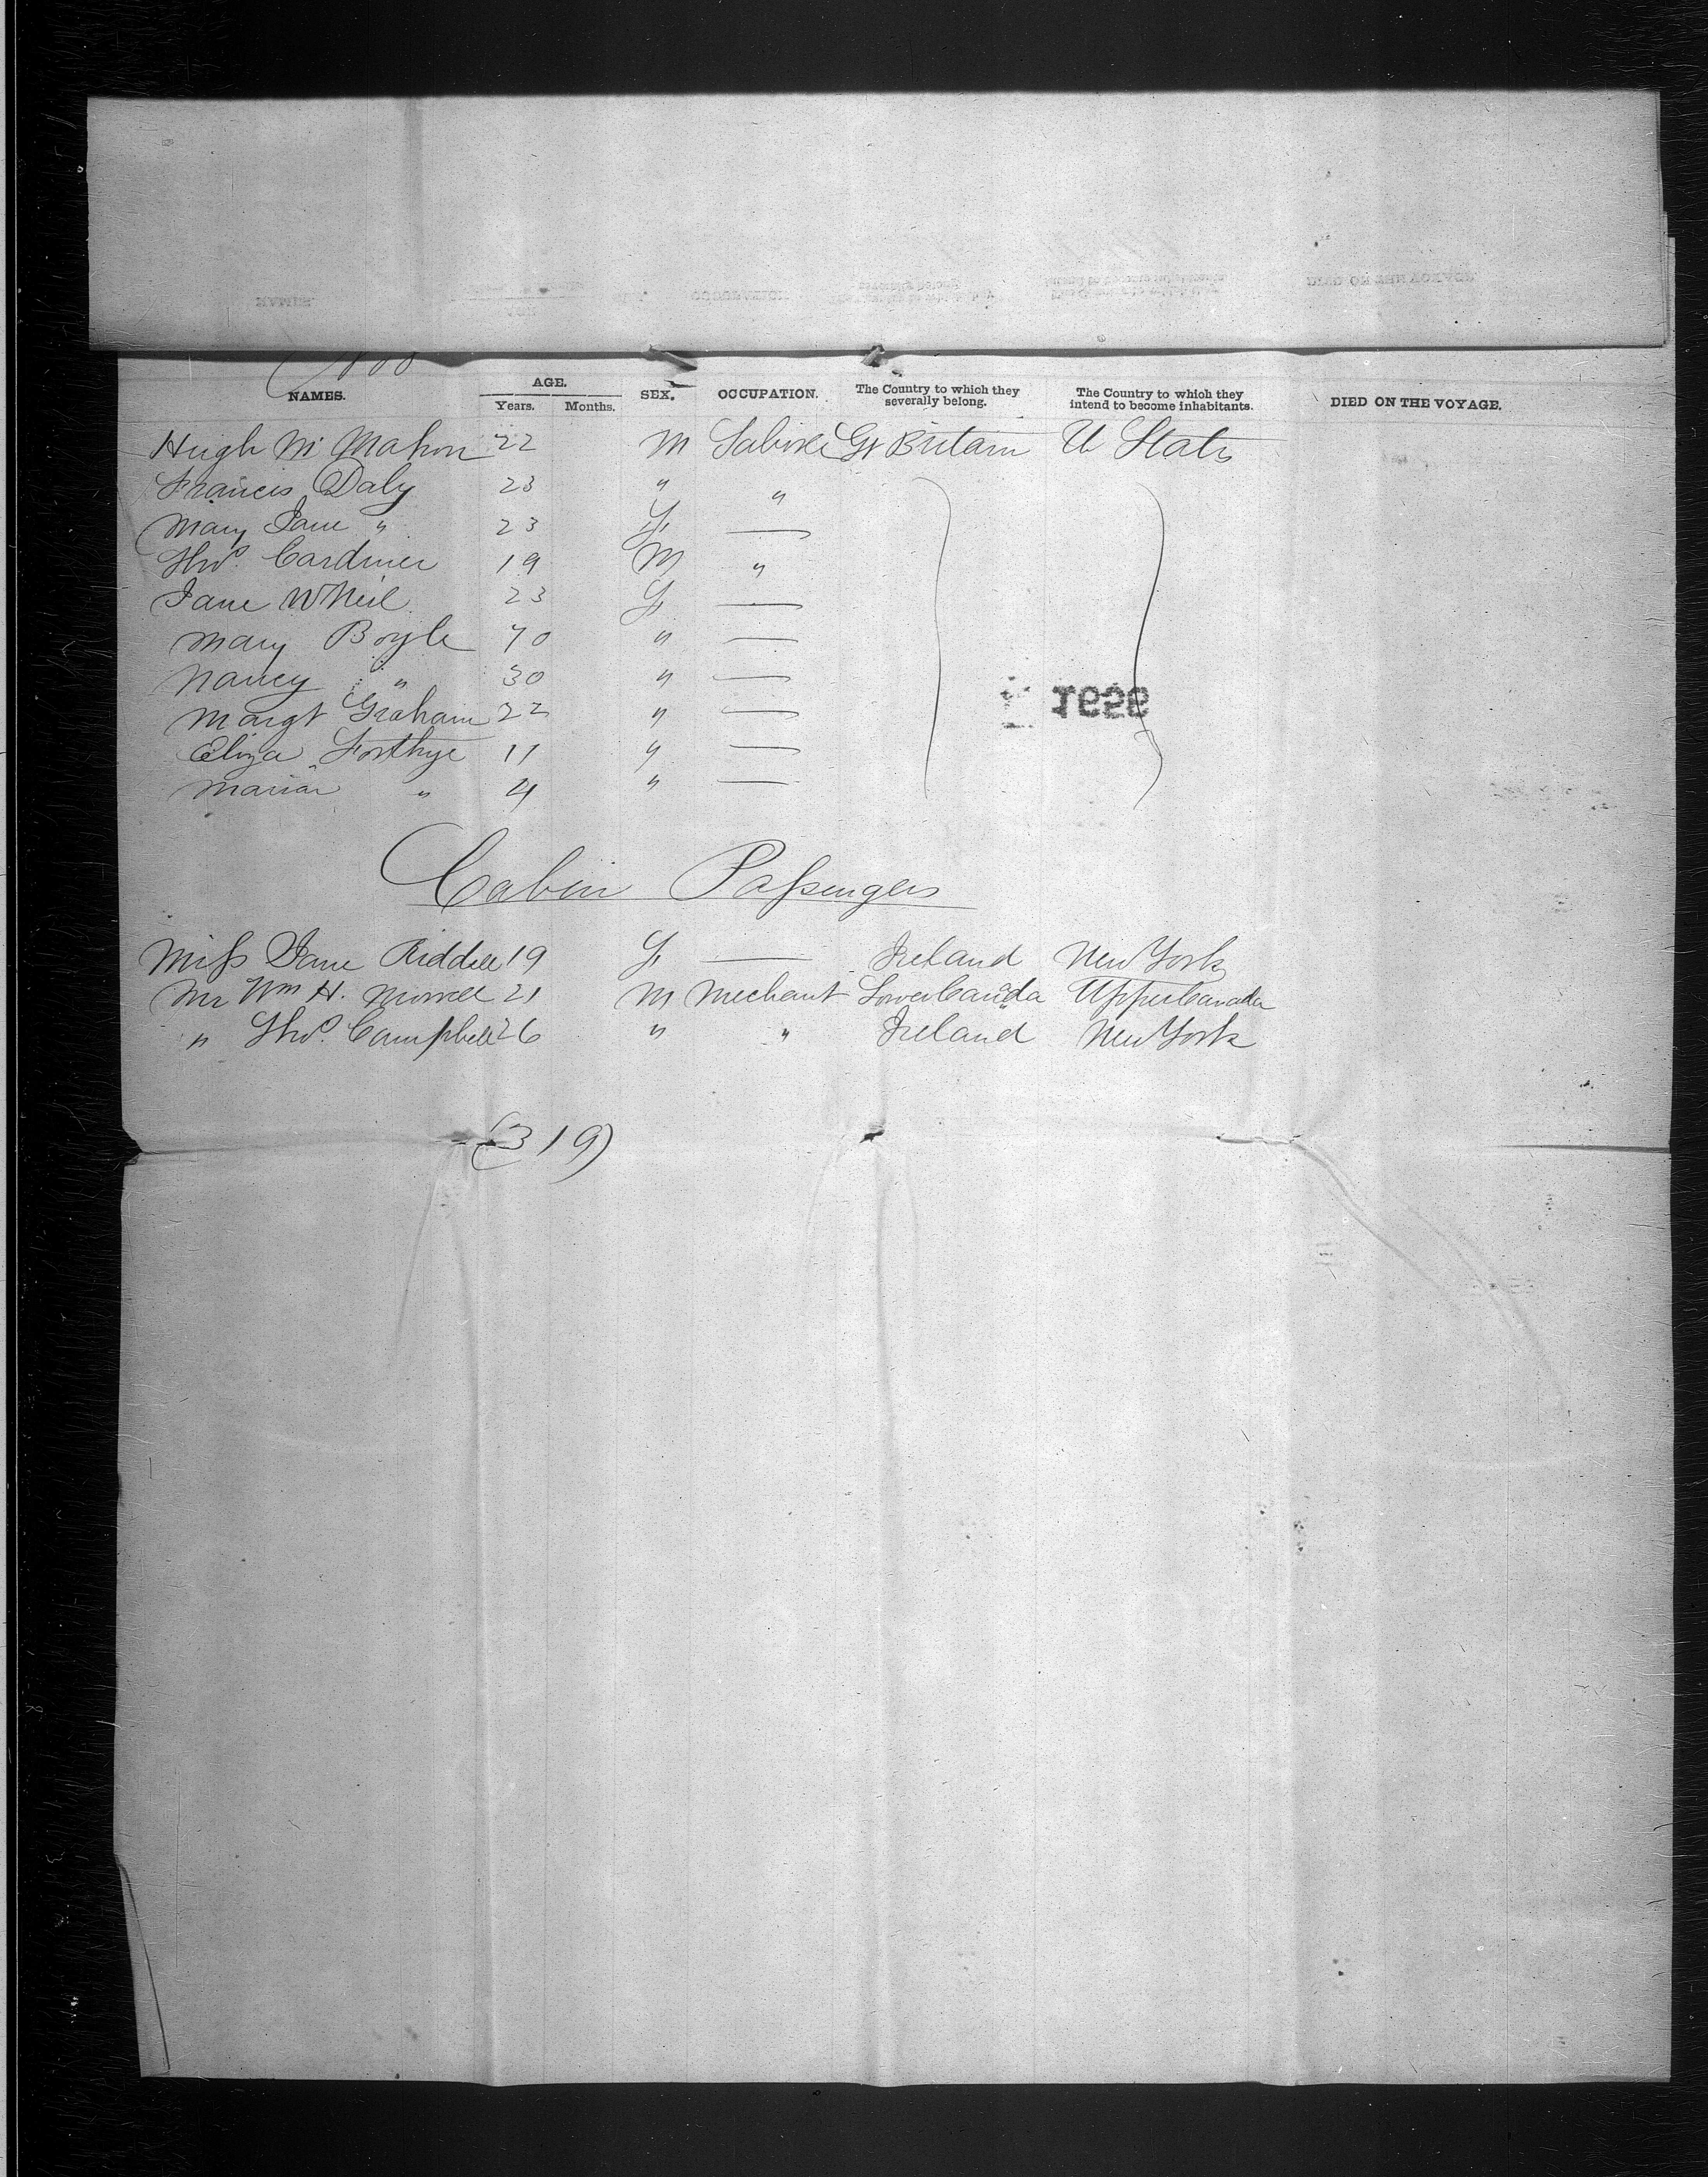 NAMES. AGE. Years. Months. SEX. OCCUPATION. The Country to which they severally belong. The Country to which they intend to become inhabitants. DIED ON THE VOYAGE.
Hugh Mc Mahon 22 M Laborer Gt Britain U States
Francis Daly 23 " "
Mary Jane " 23 F —
Thos. Cardiner 19 M "
Jane McNeil 23 F —
Mary Boyle 70 " —
Nancy " 30 " —
Margt Graham 22 " —
Eliza Forthye 11 " —
Maria " 4 " —
Cabin Passengers
Miss Jane Riddell 19 F — Ireland New York
Mr Wm H. 21 M Mechant Lower Canada Upper Canada
" Thos. Campbell 26 " " Ireland New York
(319)